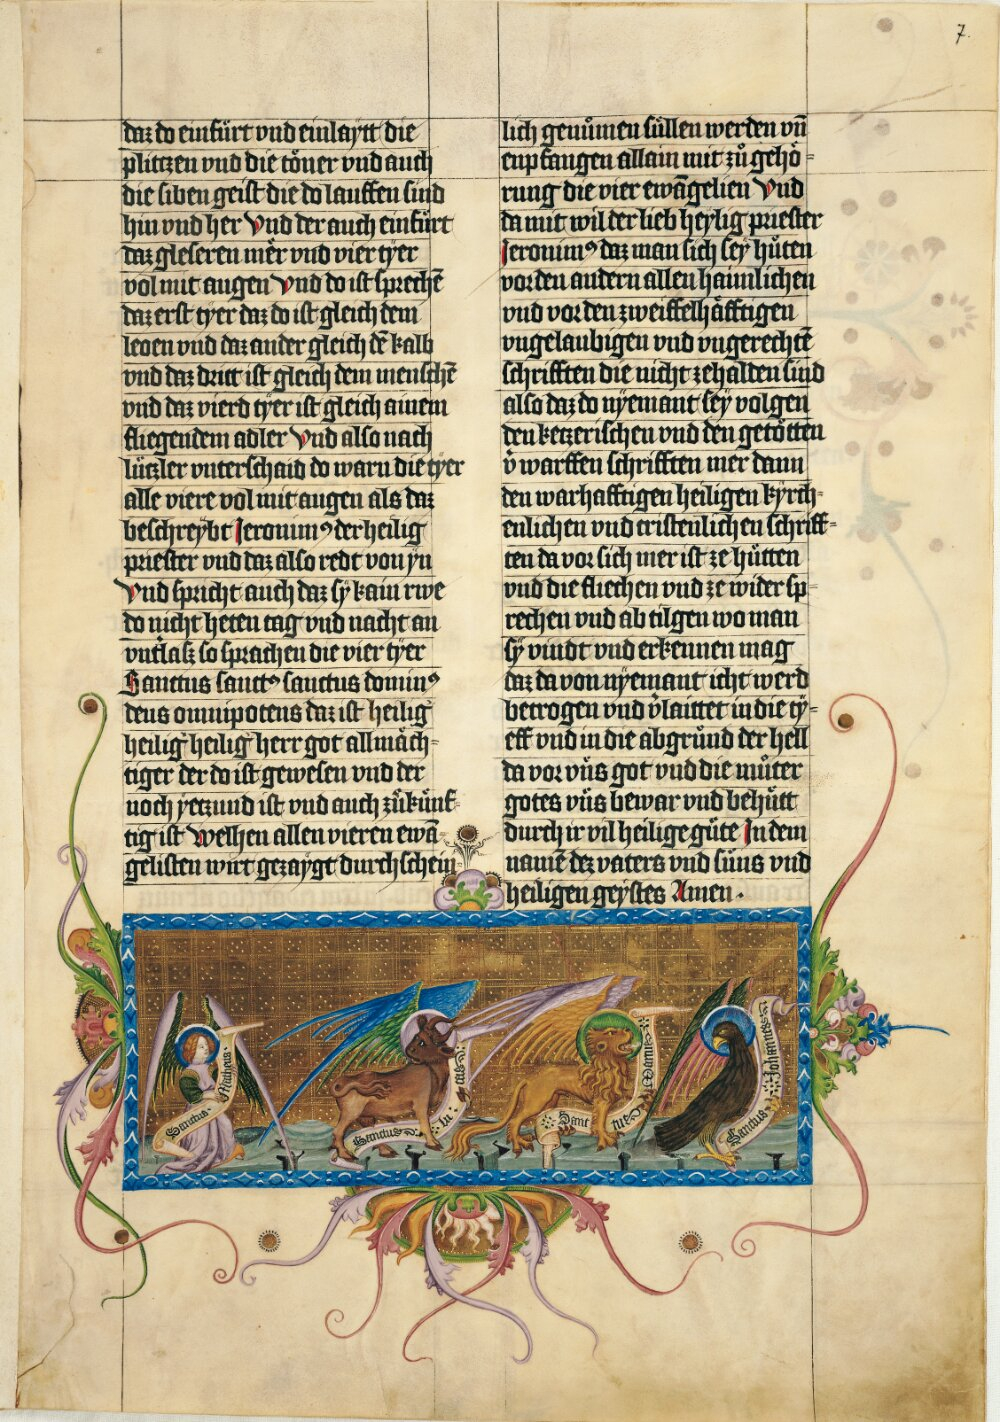 7.
daz do einfürt vnd einlaytt die
plitzen vnd die töner vnd auch
die siben geist die do lauffen sind
hin vnd her Vnd der auch einfürt
daz gleseren mër vnd vier tÿer
vol mit augen Vnd do ist sprechē
daz erst tÿer daz do ist gleich dem
leoen vnd daz ander gleich dē kalb
vnd daz dritt ist gleich dem menschē
vnd daz vierd tÿer ist gleich ainem
fliegendem adler Vnd also nach
lützler vnterschaid do warn die tÿer
alle viere vol mit augen als daz
beschreÿbt Jeronimꝰ der heilig
priester vnd daz also redt von ÿn
Vnd spricht auch daz sÿ kain rwe
do nicht heten tag vnd nacht an
vntlasz so sprachen die vier tÿer
Sanctus sanctꝰ sanctus dominꝰ
deus omnipotens daz ist heilig
heilig heilig herr got allmäch=
tiger der do ist gewesen vnd der
noch ÿetzund ist vnd auch zůkünf=
tig ist Welhen allen vieren ewā=
gelisten wirt gezaÿgt durch schein=
lich genůmen süllen werden vn̄
enpfangen allain mit zů gehö=
rung die vier ewāgelien Vnd
da mit wil der lieb heÿlig priester
Jeronimꝰ daz man sich seÿ hüten
vor den andern allen haimlichen
vnd vor den zweiffelhäfftigen
vngelaubigen vnd vngerechtē
schrifften die nicht zehalden sind
also daz do nÿemant seÿ volgen
den ketzerischen vnd den getöttēn
v̄warffen schrifften mer dann
den warhafftigen heiligen kÿrch=
enlichen vnd cristenlichen schriff=
ten da vor sich mer ist ze hütten
vnd die fliechen vnd ze wider sp=
rechen vnd ab tilgen wo man
sÿ vindt vnd erkennen mag
daz da von nÿemant icht werd
betrogen vnd v̄laittet in die tÿ=
eff vnd in die abgründ der hell
da vor vns got vnd die müter
gotes vns bewar vnd behütt
durch ir vil heilige güte In dem
namē dez vaters vnd süns vnd
heiligen geÿstes Amen.
Sanctus Matheus
Sanctus lucus
Sanctus Marcus
Sanctus Johannes